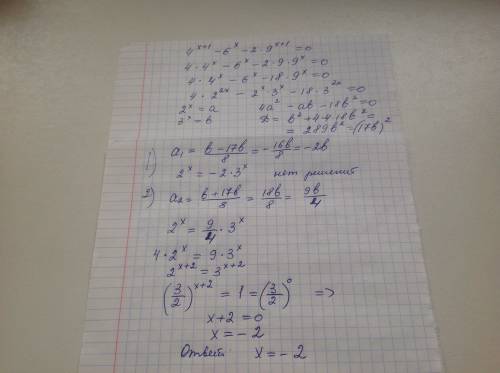 4^(x+1) - 6^x - 2·9^(x+1) = 0
4·4^x - 6^x - 2·9·9^x = 0
4·4^x - 6^x - 18·9^x = 0
4·2^(2x) - 2^x·3^x - 18·3^(2x) = 0
2^x = a   4a² - ab - 18b² = 0
3^x = b   D = b² + 4·4·18b² =
= 289b² = (17b)²
1) a₁ = (b - 17b)/8 = -16b/8 = -2b
2^x = -2·3^x   нет решений
2) a₂ = (b + 17b)/8 = 18b/8 = 9b/4
2^x = 9/4 · 3^x
4·2^x = 9·3^x
2^(x+2) = 3^(x+2)
(3/2)^(x+2) = 1 = (3/2)^0 =>
x+2 = 0
x = -2
Ответ: x = -2